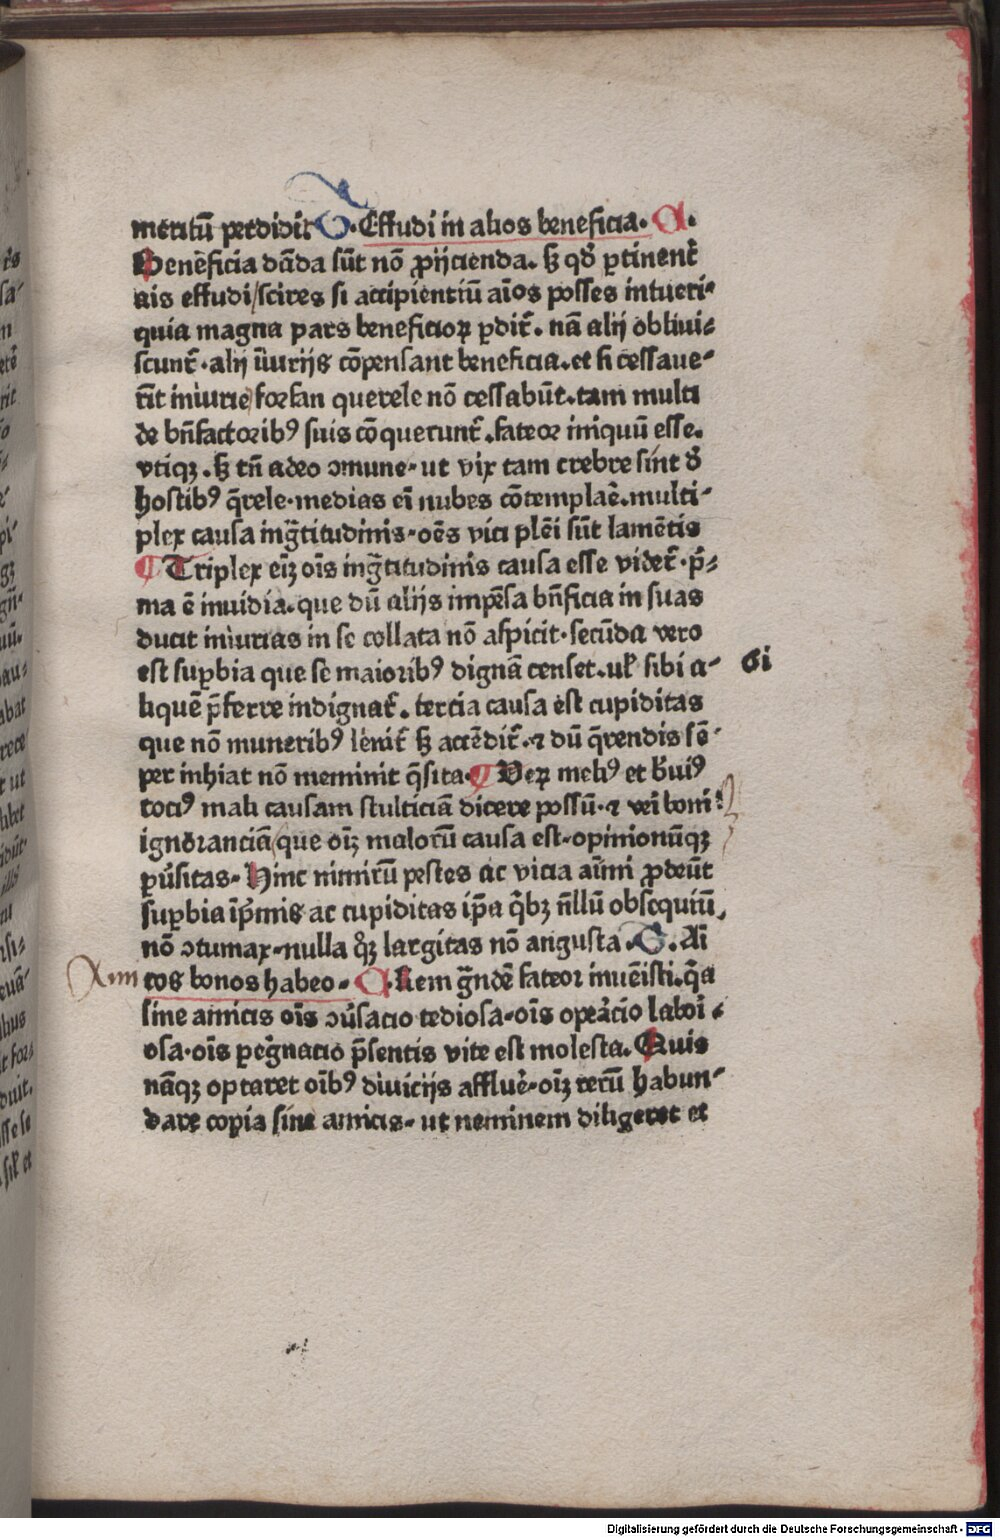 meritū perdidit S. Effudi in alios beneficia. A.
Beneficia dāda sūt nō ꝓijcienda. sꝫ qđ ꝑtinent̄
ais effudi / scires si accipientiū aīos posses intueri⸗
quia magna pars beneficioꝝ ꝑdit̄. nā alij obliui⸗
scunt̄. alij īiurijs cōpensant beneficia. et si cessaue⸗
rīt iniurie forsan querele nō cessabūt. tam multi
de bn̄factoribꝰ suis cōquerunt̄. fateor iniquū esse.
vtiqꝫ. sꝫ tn̄ adeo ↄmune. ut vix tam crebre sint đ
hostibꝰ q̄rele. medias eī nubes cōtemplaē. multi⸗
plex causa ingr̄titudinis. oēs vici plēi sūt lamētis
¶ Triplex eīꝫ oīs ingr̄titudinis causa esse videt̄. p̄⸗
ma ē inuidia. que dū alijs impēsa bn̄ficia in suas
ducit iniurias in se collata nō aspicit. secūda vero
est suꝑbia que se maioribꝰ dignā censet. ul̄ sibi a⸗
liquē p̄ferre indignat̄. tercia causa est cupiditas
que nō muneribꝰ lēnit̄ sꝫ accēdit̄. ⁊ dū q̄rendis sē⸗
per inhiat nō meminit q̄sita. ¶ Veꝝ meliꝰ et b̄uiꝰ
tociꝰ mali causam stulticiā dicere possū. ⁊ veī boni
ignōranciā que oīꝫ malorū causa est. opinionūqꝫ
ꝑūsitas. Hinc nimirū pestes ac vicia aīmi ꝓdeūt
suꝑbia īp̄mis ac cupiditas ip̄a q̄bꝫ n̄llū obsequiū
nō ↄtumax. nulla qꝫ largitas nō angusta. S. Ai
cos bonos habeo. A. Rem gr̄ndē fateor inuēisti. q̄a
sine amicis oīs ↄūsacio tediosa. oīs oꝑācio labōī⸗
osa. oīs ꝑegr̄nacio p̄sentis vite est molesta. Quis
nāqꝫ optaret oībꝰ diuicijs affluē. oīꝫ rerū habun⸗
dare copia sine amicis. ut neminem diligeret et
Digitalisierung gefördert durch die Deutsche Forschungsgemeinschaft - DFG